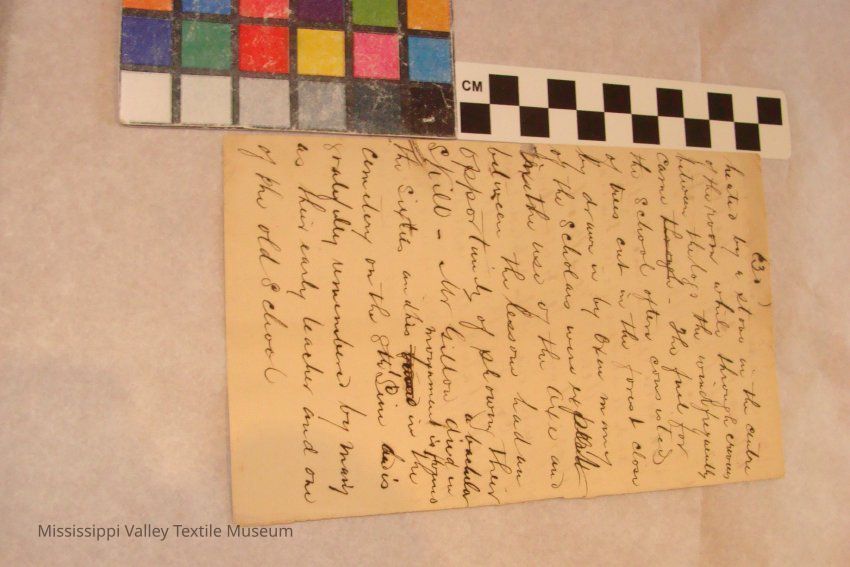 (3)
heated by a stove in the centre
of the room while through crevices
between the logs the wind frequently
came through - The fuel for
the School often consisted
of trees cut in the forest close
by drawn in by Oxen many
of the Scholars were expert
in the use of the Axe and
between the lessons had an
opportunity of showing their
Skill - Mr Gillon died in
a bachelor
the Sixties and his in the
monument is
cemetery on the 8th line
gratefully remembered by many
as their early teacher and one
of the old School
CM
Mississippi Valley Textile Museum